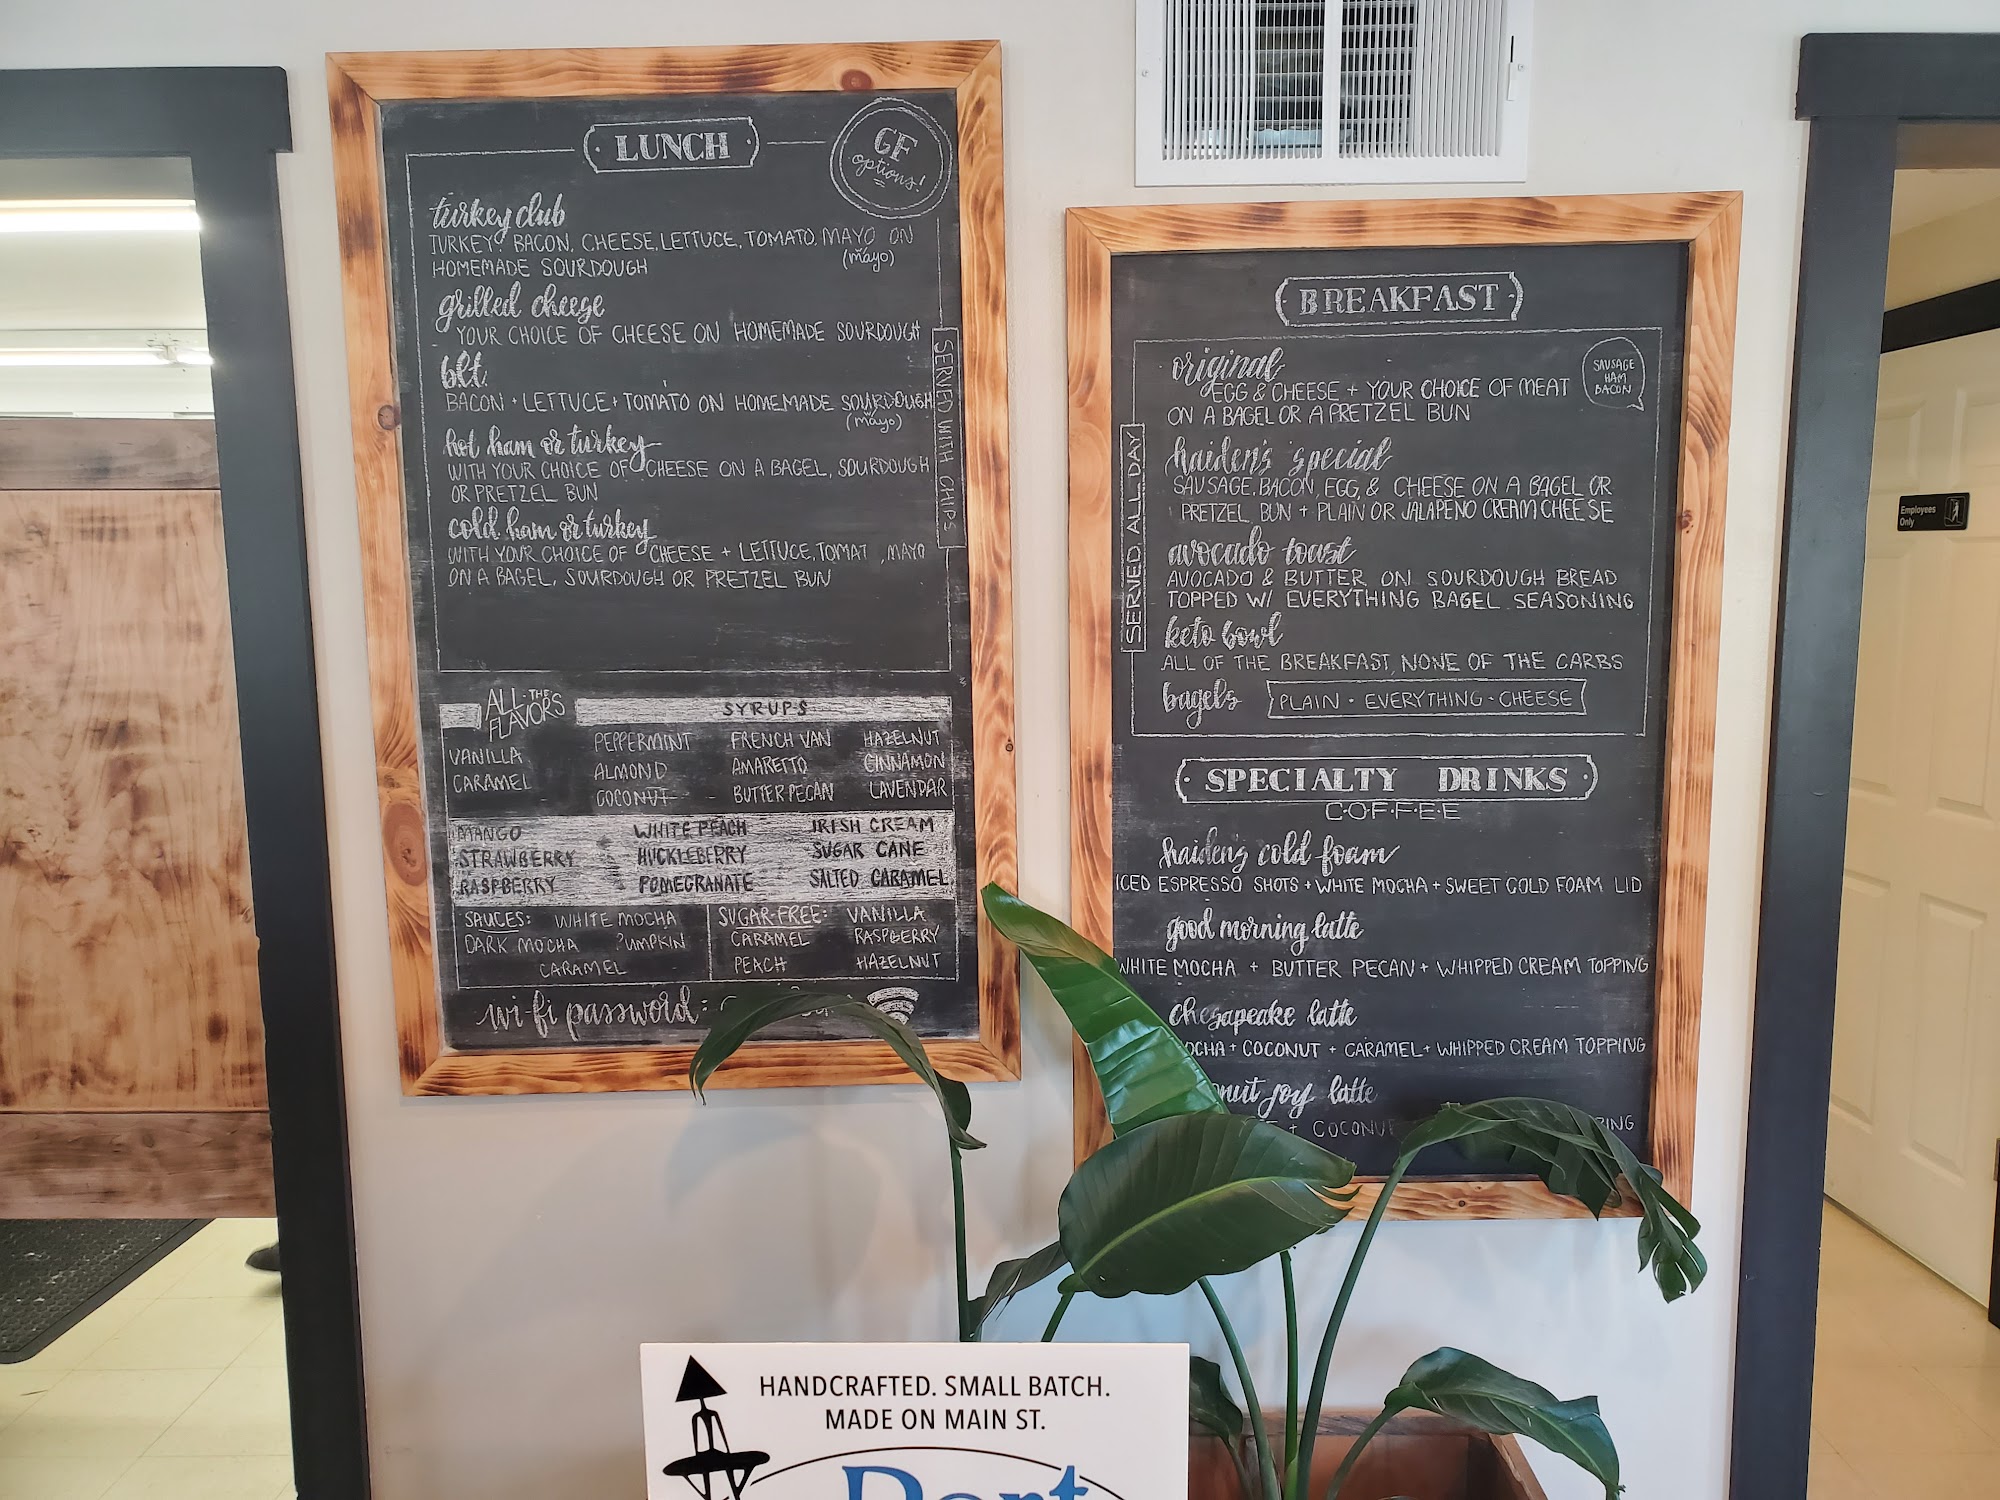 LUNCH
GF
options!
turkey club
TURKEY, BACON, CHEESE, LETTUCE, TOMATO, MAYO ON
(mayo)
HOMEMADE SOURDOUGH
grilled cheese
YOUR CHOICE OF CHEESE ON HOMEMADE SOURDOUGH
blt
BACON + LETTUCE + TOMATO ON HOMEMADE SOURDOUGH
(mayo)
hot ham or turkey
WITH YOUR CHOICE OF CHEESE ON A BAGEL, SOURDOUGH
OR PRETZEL BUN
cold ham or turkey
WITH YOUR CHOICE OF CHEESE + LETTUCE, TOMAT , MAYO
ON A BAGEL, SOURDOUGH OR PRETZEL BUN
SERVED WITH CHIPS
ALL·THE
FLAVORS
SYRUPS
VANILLA PEPPERMINT FRENCH VAN HAZELNUT
CARAMEL ALMOND AMARETTO CINNAMON
COCONUT BUTTER PECAN LAVENDAR
MANGO WHITE PEACH IRISH CREAM
STRAWBERRY HUCKLEBERRY SUGAR CANE
RASPBERRY POMEGRANATE SALTED CARAMEL
SAUCES: WHITE MOCHA
DARK MOCHA PUMPKIN
CARAMEL
SUGAR-FREE: VANILLA
CARAMEL RASPBERRY
PEACH HAZELNUT
wi-fi password:
BREAKFAST
original
EGG & CHEESE + YOUR CHOICE OF MEAT
ON A BAGEL OR A PRETZEL BUN
SAUSAGE
HAM
BACON
haiden's special
SAUSAGE, BACON, EGG, & CHEESE ON A BAGEL OR
PRETZEL BUN + PLAIN OR JALAPENO CREAM CHEESE
avocado toast
AVOCADO & BUTTER ON SOURDOUGH BREAD
TOPPED W/ EVERYTHING BAGEL SEASONING
keto bowl
ALL OF THE BREAKFAST, NONE OF THE CARBS
bagels PLAIN · EVERYTHING · CHEESE
SERVED ALL DAY
SPECIALTY DRINKS
C·O·F·F·E·E
haiden's cold foam
ICED ESPRESSO SHOTS + WHITE MOCHA + SWEET COLD FOAM LID
good morning latte
WHITE MOCHA + BUTTER PECAN + WHIPPED CREAM TOPPING
chesapeake latte
OCHA + COCONUT + CARAMEL + WHIPPED CREAM TOPPING
nut joy latte
+ COCONU PING
Employees
Only
HANDCRAFTED. SMALL BATCH.
MADE ON MAIN ST.
Port